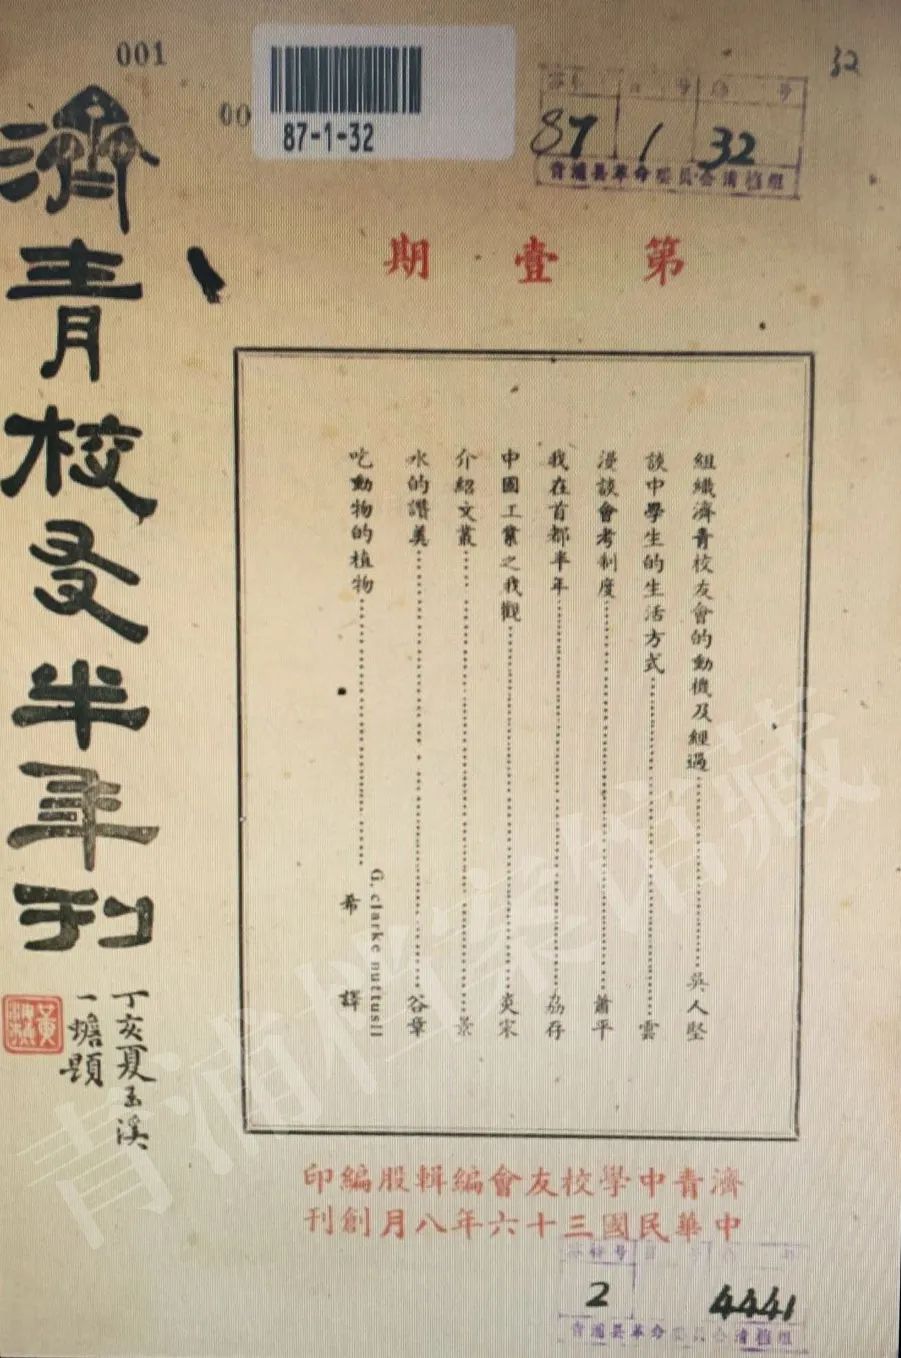 001
00
87-1-32
32
87 1 32
青浦县革命委員会清档組
第壹期
濟青校友半年刊
丁亥夏玉溪
一蟾題
組織濟青校友會的動機及經過……吳人堅
談中學生的生活方式……雲
漫談會考制度……蕭平
我在首都半年……荔存
中國工業之我觀……奕宋
介紹文叢……景
水的讚美……谷章
吃動物的植物……G. clarke nuttusll
希譯
濟青中學校友會編輯股編印
中華民國三十六年八月創刊
2 4441
青浦县革命委員会清档組
青浦档案馆藏